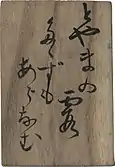 とやまの霞
たゝずも
あらなむ